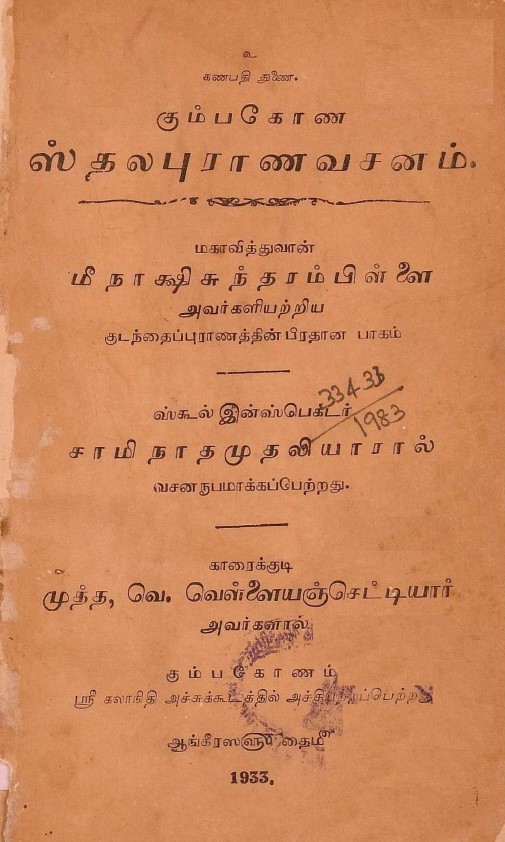 உ
கணபதி துணை.
கும்பகோண
ஸ்தலபுராணவசனம்.
மகாவித்துவான்
மீநாக்ஷிசுந்தரம்பிள்ளை
அவர்களியற்றிய
குடந்தைப்புராணத்தின் பிரதான பாகம்
33433
1983
ஸ்கூல் இன்ஸ்பெக்டர்
சாமிநாதமுதலியாரால்
வசனநபமாக்கப்பெற்றது.
காரைக்குடி
முத்த, வெ. வெள்ளையஞ்செட்டியார்
அவர்களால்
கும்பகோணம்
ஸ்ரீ கலாநிதி அச்சுக்கூடத்தில் அச்சிடப்பெற்றது
ஆங்கீரஸஹு தைமீ
1933.